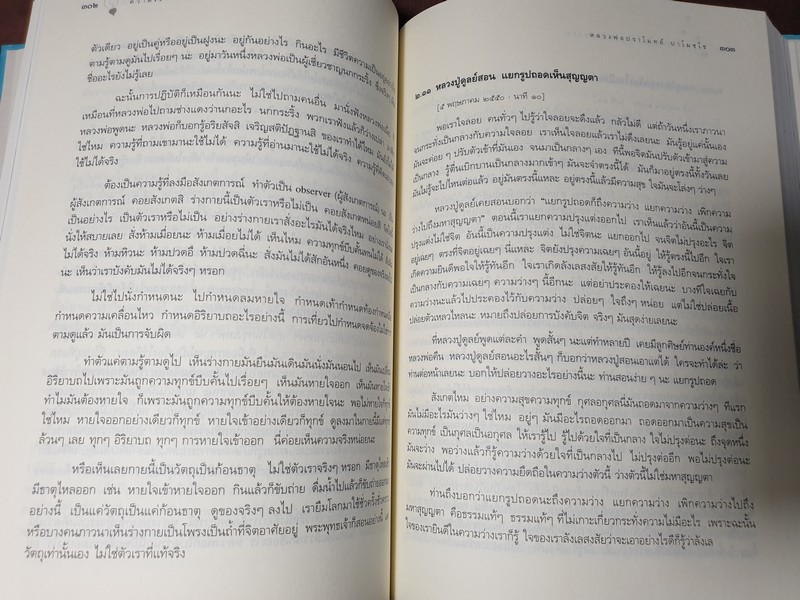 ๓๐๒
ตัวเดียว อยู่เป็นคู่หรืออยู่เป็นฝูงนะ อยู่กันอย่างไร กินอะไร มีชีวิตความเป็นอยู่
ตามรู้ตามดูมันไปเรื่อยๆ นะ อยู่มาวันหนึ่งหลวงพ่อเป็นผู้เชี่ยวชาญนกกระริ้ง
ชื่ออะไรยังไม่รู้เลย
ฉะนั้นการปฏิบัติก็เหมือนกันนะ ไม่ใช่ไปถามคนอื่น มานั่งฟังหลวงพ่อ
เหมือนที่หลวงพ่อไปถามช่างแดงว่านกอะไร นกกระริ้ง พวกเราฟังแล้วก็ว่างเปล่า
หลวงพ่อพูดนะ หลวงพ่อก็บอกรู้อริยสัจสิ เจริญสติปัฏฐานสิ ของเราทำได้ไหม
ใช่ไหม ความรู้ที่ถามเขามานะใช้ไม่ได้ ความรู้ที่อ่านมานะใช้ไม่ได้จริง ความรู้ที่
ใช้ไม่ได้จริง
ต้องเป็นความรู้ที่ลงมือสังเกตการณ์ ทำตัวเป็น observer (ผู้สังเกตการณ์)
ผู้สังเกตการณ์ คอยสังเกตสิ ร่างกายนี้เป็นตัวเราหรือไม่เป็น คอยสังเกตหน่อยสิ
เป็นอย่างไร เป็นตัวเราหรือไม่เป็น อย่างร่างกายเราสั่งอะไรมันได้จริงไหม
นั่งให้สบายเลย สั่งห้ามเมื่อยนะ ห้ามเมื่อยไม่ได้ เห็นไหม ความทุกข์บีบคั้นทนไม่ได้
ไม่ได้จริง ห้ามหิวนะ ห้ามปวดอึ ห้ามปวดฉี่นะ สั่งมันไม่ได้สักอันหนึ่ง คอยดูของจริง
นะ เห็นว่าเราบังคับมันไม่ได้จริงๆ หรอก
ไม่ใช่ไปนั่งกำหนดนะ ไปกำหนดลมหายใจ กำหนดเท้ากำหนดท้องกำหนด
กำหนดความเคลื่อนไหว กำหนดอิริยาบถอะไรอย่างนี้ การเที่ยวไปกำหนดจดจ้อง
ตามดูแล้ว มันเป็นการจับผิด
ทำตัวแค่ตามรู้ตามดูไป เห็นร่างกายมันยืนมันเดินมันนั่งมันนอนไป
อิริยาบถไปเพราะมันถูกความทุกข์บีบคั้นไปเรื่อยๆ เห็นมันหายใจออก เห็นมันหายใจ
ทำไมมันต้องหายใจ ก็เพราะมันถูกความทุกข์บีบคั้นให้ต้องหายใจนะ พอไม่หายใจ
ใช่ไหม หายใจออกอย่างเดียวก็ทุกข์ หายใจเข้าอย่างเดียวก็ทุกข์ ดูลงมาในกายนี้
ล้วนๆ เลย ทุกๆ อิริยาบถ ทุกๆ การหายใจเข้าออก นี่ค่อยเห็นความจริงหน่อยนะ
หรือเห็นเลยกายนี้เป็นวัตถุเป็นก้อนธาตุ ไม่ใช่ตัวเราจริงๆ หรอก มีธาตุไหล
มีธาตุไหลออก เช่น หายใจเข้าหายใจออก กินแล้วก็ขับถ่าย ดื่มน้ำไปแล้วก็ขับถ่าย
อย่างนี้ เป็นแค่วัตถุเป็นแค่ก้อนธาตุ ดูของจริงๆ ลงไป เรายืมโลกมาใช้ชั่วครั้งชั่วคราว
หรือบางคนภาวนาเห็นร่างกายเป็นโพรงเป็นถ้ำที่จิตอาศัยอยู่ พระพุทธเจ้าก็สอนอย่างนี้
วัตถุเท่านั้นเอง ไม่ใช่ตัวเราที่แท้จริง
หลวงพ่อปราโมทย์ ปาโมชฺโช ๓๐๓
๒.๑๑ หลวงปู่ดูลย์สอน แยกรูปถอดเห็นสุญญตา
[๕ พฤษภาคม ๒๕๕๐ : นาที ๑๐]
พอเราใจลอย คนทั่วๆ ไปรู้ว่าใจลอยจะดึงแล้ว กลัวไม่ดี แต่ถ้าวันหนึ่งเราภาวนา
จนกระทั่งเป็นกลางกับความใจลอย เราเห็นใจลอยแล้วเราไม่ดึงเลยนะ มันรู้อยู่แค่นั้นเอง
มันจะค่อย ๆ ปรับตัวเข้าที่มันเอง จนมาเป็นกลางๆ เอง ทีนี้พอจิตมันปรับตัวเข้ามาสู่ความ
เป็นกลาง รู้ตื่นเบิกบานเป็นกลางมากเข้าๆ มันจะจำตรงนี้ได้ มันก็มาอยู่ตรงนี้ทั้งวันเลย
มันไม่รู้จะไปไหนต่อแล้ว อยู่มันตรงนี้แหละ อยู่ตรงนี้แล้วมีความสุข ใจมันจะโล่งๆ ว่างๆ
หลวงปู่ดูลย์เคยสอนบอกว่า “แยกรูปถอดก็ถึงความว่าง แยกความว่าง เพิกความ
ว่างไปถึงมหาสุญญตา” ตอนนี้เราแยกความปรุงแต่งออกไป เราเห็นแล้วว่าอันนี้เป็นความ
ปรุงแต่งไม่ใช่จิต อันนี้เป็นความปรุงแต่ง ไม่ใช่จิตนะ แยกออกไป จนจิตไม่ปรุงอะไร จิต
อยู่เฉยๆ ตรงที่จิตอยู่เฉยๆ นี่แหละ จิตยังปรุงความเฉยๆ อันนี้อยู่ ให้รู้ตรงนี้ไปอีก ใจเรา
เกิดความยินดีพอใจให้รู้ทันอีก ใจเราเกิดลังเลสงสัยให้รู้ทันอีก ให้รู้ลงไปอีกจนกระทั่งใจ
เป็นกลางกับความเฉยๆ ความว่างๆ นี้อีกนะ แต่อย่าประคองให้เฉยนะ บางทีใจเฉยกับ
ความว่างนะแล้วไปประคองไว้กับความว่าง ปล่อยๆ ใจถึงๆ หน่อย แต่ไม่ใช่ปล่อยเนื้อ
ปล่อยตัวเหลวไหลนะ หมายถึงปล่อยการบังคับจิต จริงๆ มันสุดง่ายเลยนะ
ที่หลวงปู่ดูลย์พูดแต่ละคำ พูดสั้นๆ นะแต่ทำหลายปี เคยมีลูกศิษย์ท่านองค์หนึ่งชื่อ
หลวงพ่อคืน หลวงปู่ดูลย์สอนอะไรสั้นๆ ก็บอกว่าหลวงปู่สอนเอาแต่ได้ ใครจะทำได้ละ ว่า
ท่านต่อหน้าเลยนะ บอกให้ปล่อยวางอะไรอย่างนั้นนะ ท่านสอนง่าย ๆ นะ แยกรูปถอด
สังเกตไหม อย่างความสุขความทุกข์ กุศลอกุศลนี่มันถอดมาจากความว่างๆ ทีแรก
มันไม่มีอะไรมันว่างๆ ใช่ไหม อยู่ๆ มันมีอะไรถอดออกมา ถอดออกมาเป็นความสุขเป็น
ความทุกข์ เป็นกุศลเป็นอกุศล ให้เรารู้ไป รู้ไปด้วยใจที่เป็นกลาง ใจไม่ปรุงต่อนะ ถึงจุดหนึ่ง
มันจะว่าง พอว่างแล้วก็รู้ความว่างด้วยใจที่เป็นกลางไป ไม่ปรุงต่ออีก พอไม่ปรุงต่อนะ
มันจะผ่านไปได้ ปล่อยวางความยึดถือในความว่างตัวนี้ ว่างตัวนี้ไม่ใช่มหาสุญญตา
ท่านถึงบอกว่าแยกรูปถอดนะถึงความว่าง แยกความว่าง เพิกความว่างไปถึง
มหาสุญญตา คือธรรมแท้ๆ ธรรมแท้ๆ ที่ไม่เกาะเกี่ยวกระทั่งความไม่มีอะไร เพราะฉะนั้น
ใจของเรายินดีในความว่างเราก็รู้ ใจของเราลังเลสงสัยว่าจะเอาอย่างไรดีก็รู้ว่าลังเล